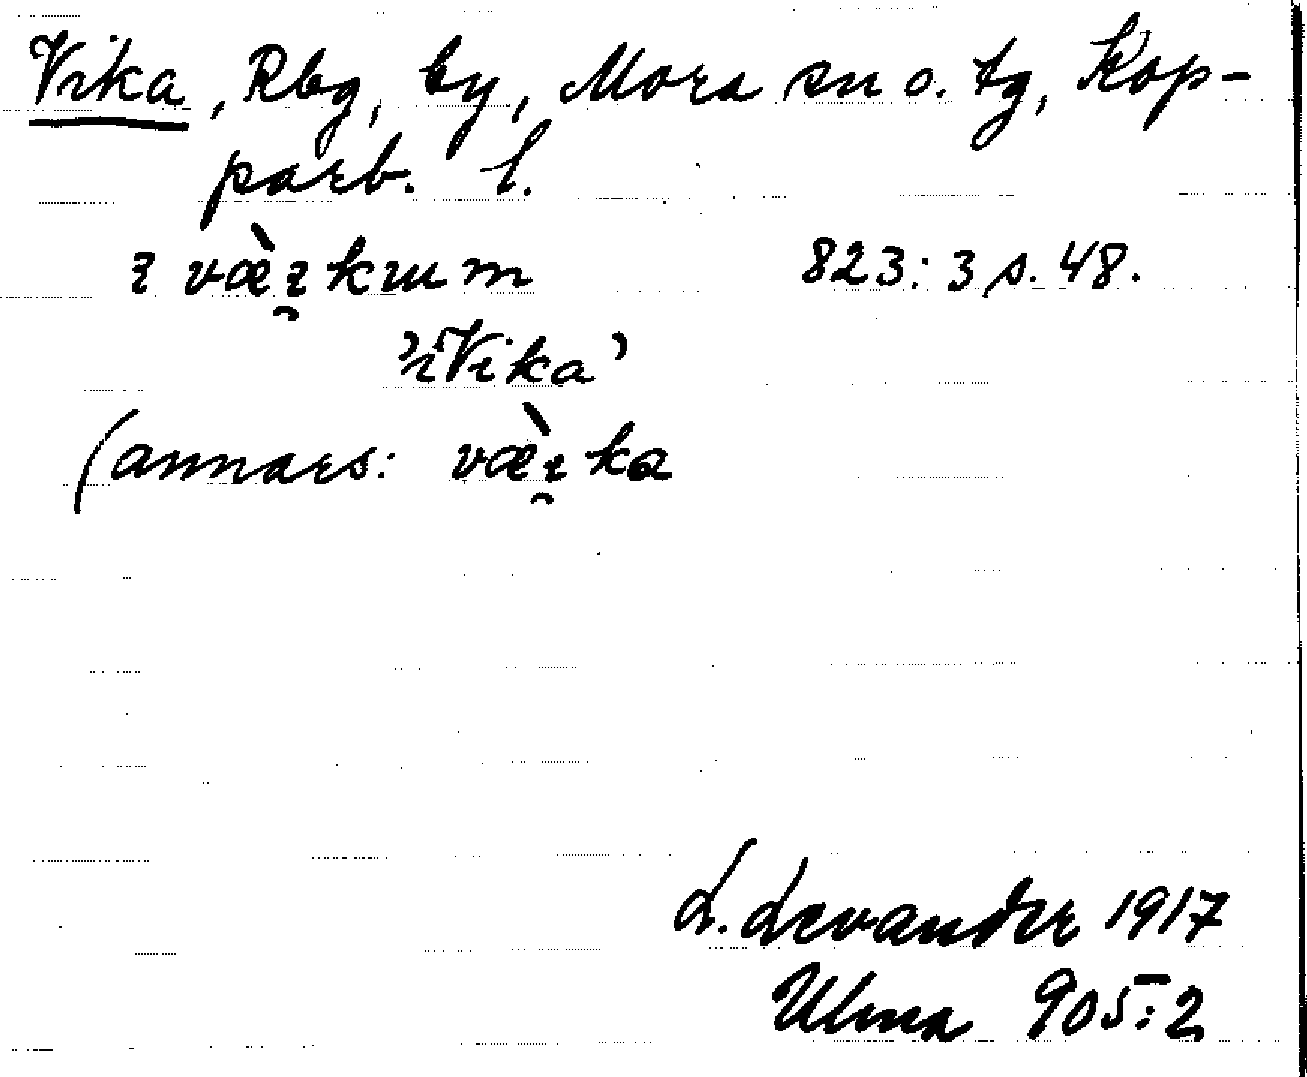 Vika, Rbg, by, Mora sn o. tg, Kop-
parb. l.
ı vœ̀ı̯kum 823:3 s. 48.
'i Vika'
(annars: vœ̀ı̯ka
L. Levander 1917
Ulma 905:2